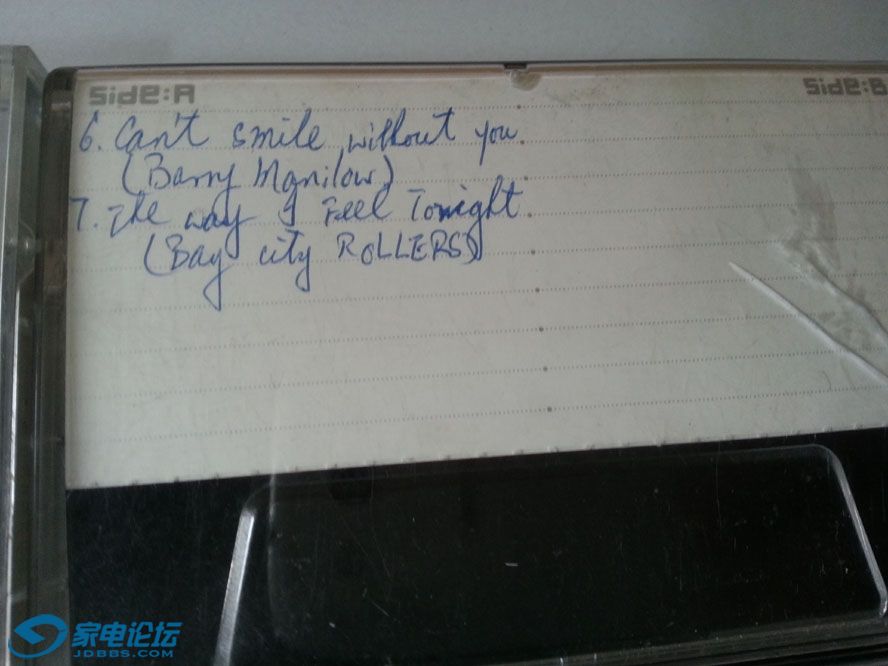 Side:A
Side:B
6. Can't smile without you
(Barry Manilow)
7. The way I Feel Tonight
(Bay city ROLLERS)
家电论坛
JDBBS.COM